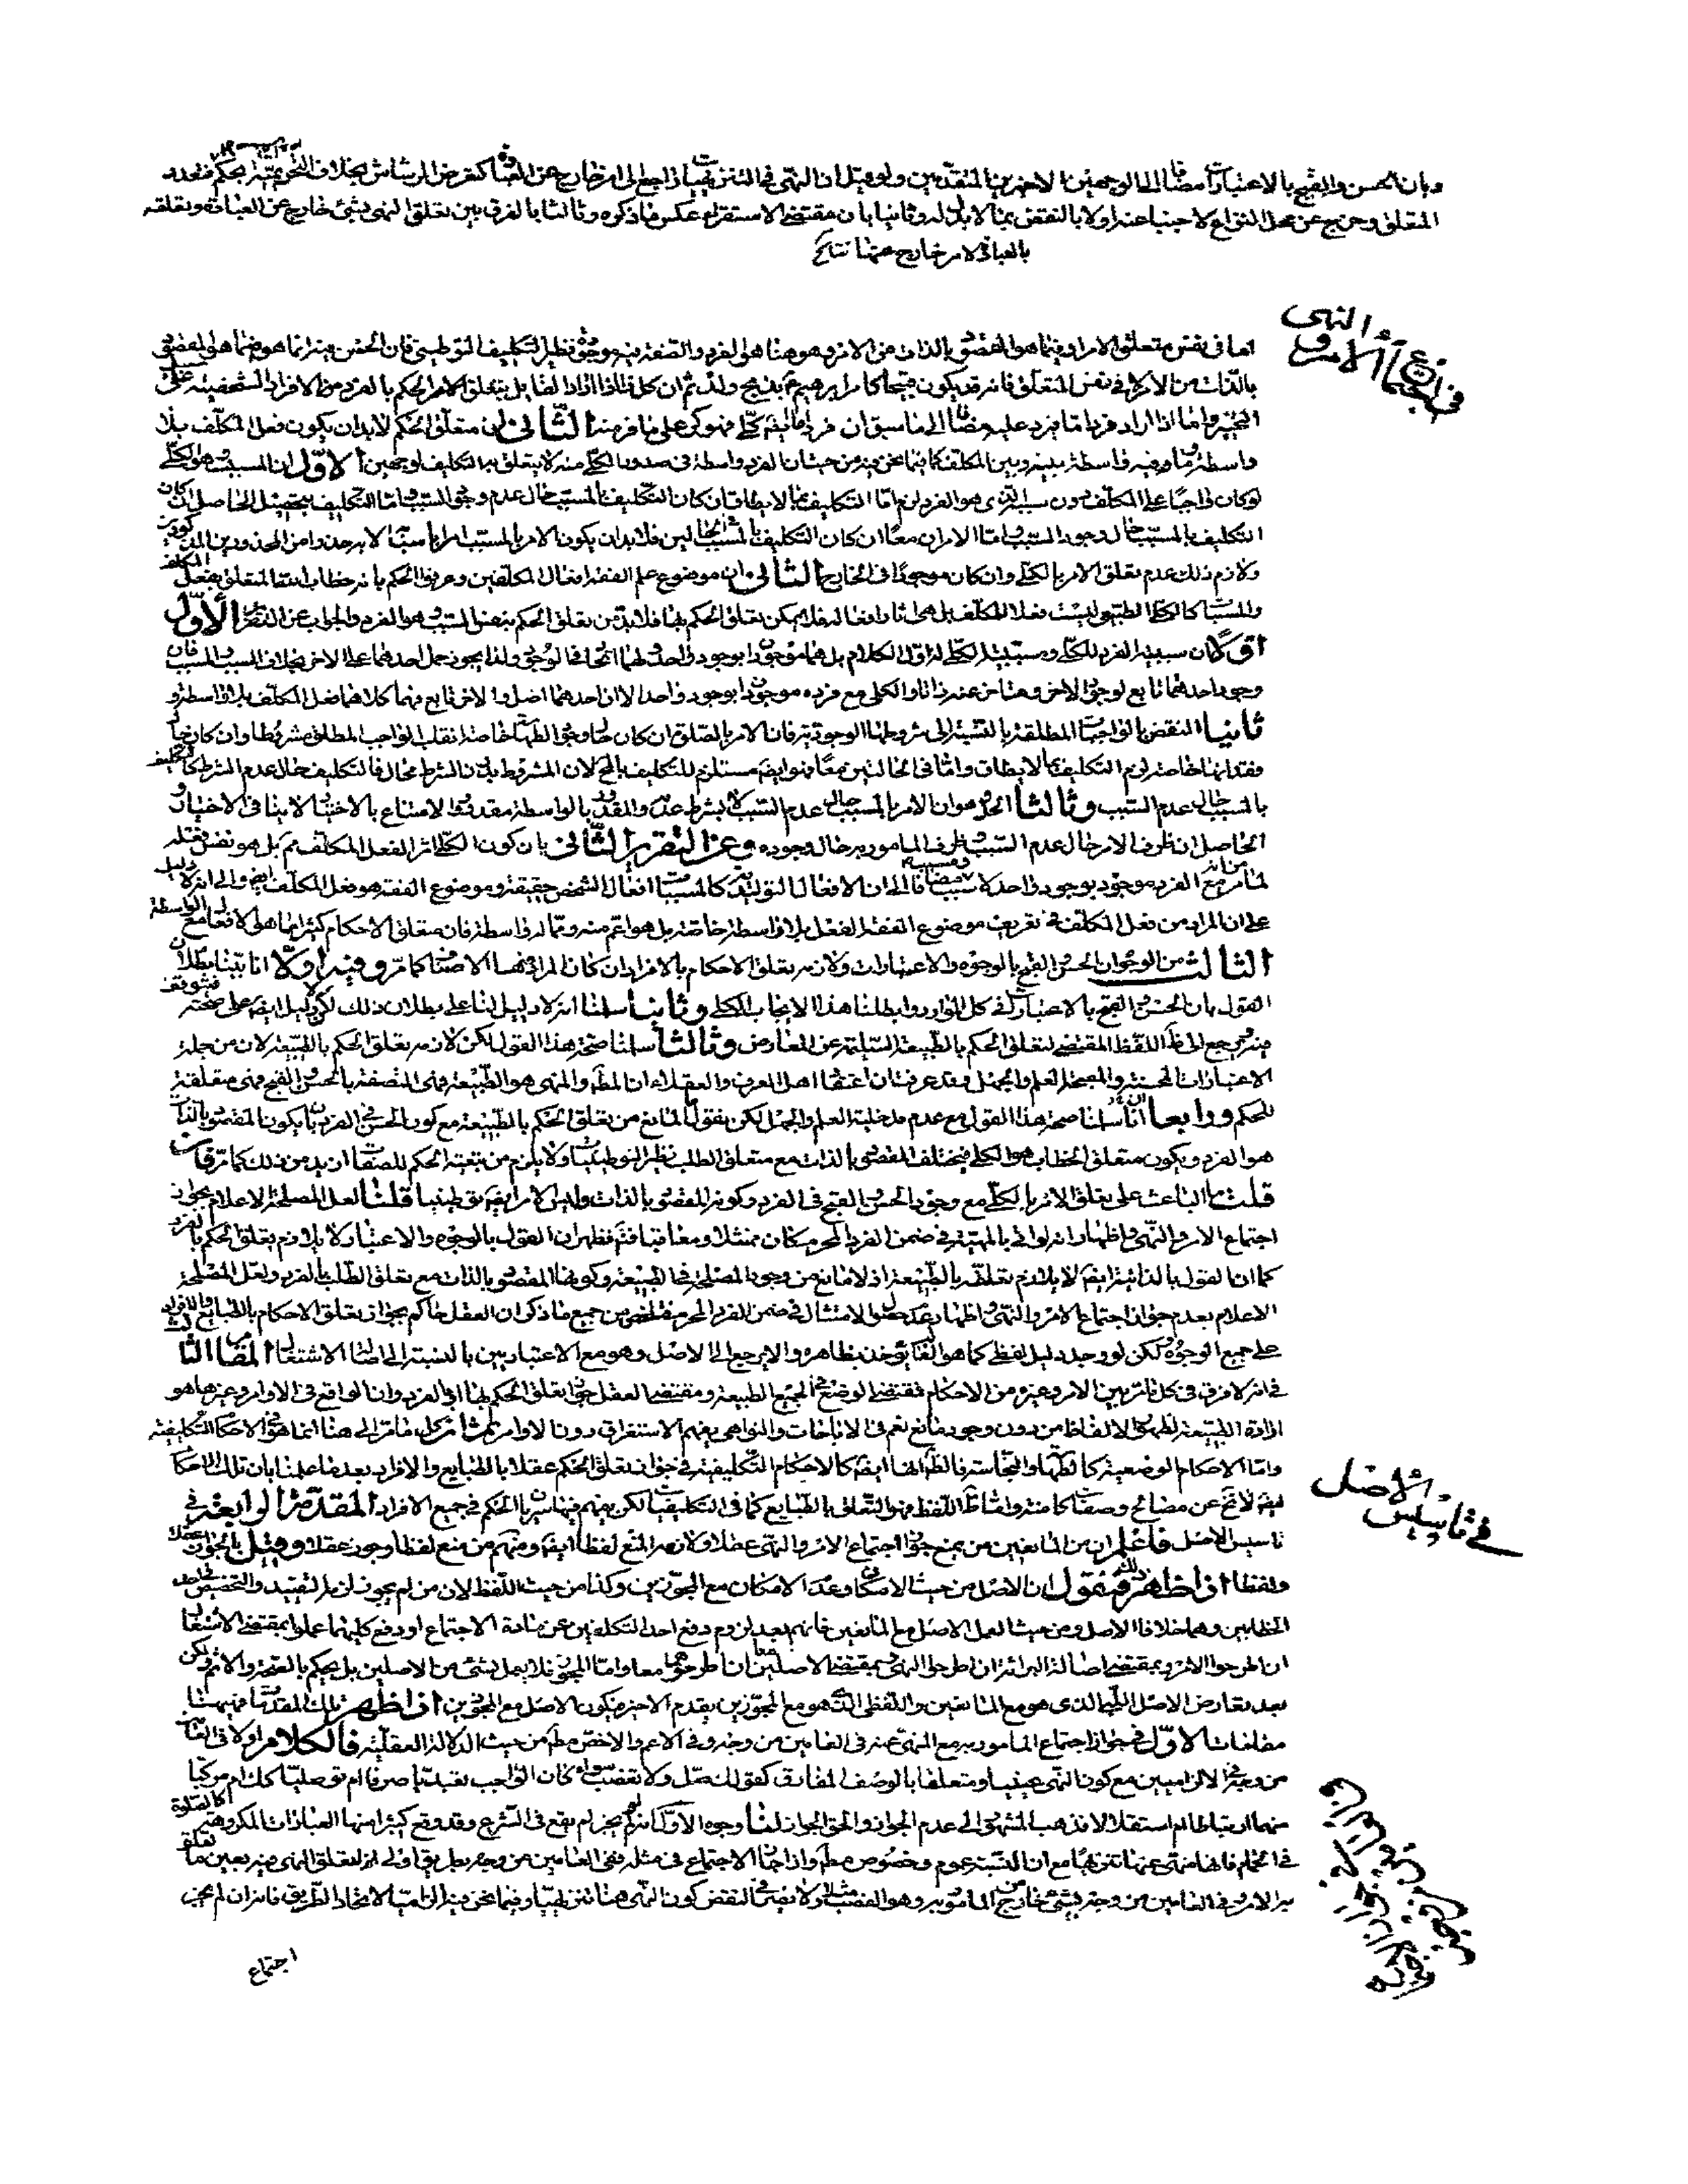 وبان الحسن والقبح بالاعتبارات مضافا الى الوجهين الاخيرين المتقدمين ولو قيل ان النهى فى التنزيهيات راجع الى امر خارج عن العبادة كتعرض الرشاش بخلاف التحريمية
المتعلق وخرج عن محل النزاع لاجبنا عنه اولا بالنقض بما لا بدل له وثانيا بان مقتضى الاستقراء عكس ما ذكره وثالثا بالفرق بين تعلق النهى بشئ خارج عن العبادة وتعلقه
بالعبادة لامر خارج عنها
فى اجتماع الامر و النهى
اما فى نفس متعلق الامر او فيما هو المقصود بالذات من الامر وهو هنا هو الفرد والصفة فيه موجودة نظير التكليف التوطينى فان الحسن فيه انما هو فيما هو المقصود
بالذات من الامر لا فى نفس المتعلق فانه قد يكون قبيحا كامر ابرهيم بذبح ولده ثم ان كل ذا اذا
التخيير واما اذا اراد فردا ما فيرد عليه مضافا الى ما سبق ان فردا ما ايضا كلى فهو كر على ما فر منه الثانى ان متعلق الحكم لابد ان يكون فعل المكلف بلا
واسطة بينه وبين المكلف كما فيما نحن فيه من حيث ان الفرد واسطة فى صدور الكلى منه لا يتعلق به التكليف لوجهين الاول ان المسبب وهو الكلى
لو كان واجبا على المكلف دون سببه الذى هو الفرد لزم اما التكليف بما لا يطاق ان كان التكليف بالمسبب حال عدم وجود السبب واما التكليف بتحصيل الحاصل ان كان
التكليف بالمسبب حال وجود السبب واما الامران معا ان كان التكليف بالمسبب فى الحالين فلابد ان يكون الامر بالمسبب امرا بسببه
ولازم ذلك عدم تعلق الامر بالكلى وان كان موجودا فى الخارج الثانى ان موضوع علم الفقه افعال المكلفين وعرفوا الحكم بانه خطاب الله المتعلق بفعل المكلف
والمسببات كالكلى الطبيعى ليست فعلا للمكلف بل هى اثار افعاله فلا يمكن تعلق الحكم بها فلابد من تعلق الحكم بنفس السبب وهو الفرد والجواب عن التقرير الاول
اولا ان سببية الفرد للكلى ومسببية الكلى له اول الكلام بل هما موجودان بوجود واحد ولهما اتحاد فى الوجود ولذا يجوز حمل احدهما على الاخر بخلاف السبب والمسبب فان
وجود احدهما تابع لوجود الاخر ومتأخر عنه ذاتا والكلى مع فرده موجودان بوجود واحد الا ان احدهما اصل والاخر تابع فهما كلاهما فعل المكلف بلا واسطة و
ثانيا النقض بالواجبات المطلقة بالنسبة الى شروطها الوجودية فان الامر بالصلوة ان كان حال وجود الطهارة خاصة انقلب الواجب المطلق مشروطا وان كان حال
فقدانها خاصة لزم التكليف بما لا يطاق واما فى الحالتين معا فهو ايضا مستلزم للتكليف بالمحال لان المشروط بدون الشرط محال فالتكليف حال عدم الشرط كالتكليف
بالمسبب حال عدم السبب وثالثا الحل وهو ان الامر بالمسبب حال عدم السبب لا بشرط عدمه والمقدور بالواسطة مقدور والامتناع بالاختيار لا ينافى الاختيار و
الحاصل ان ظرف الامر حال عدم السبب وظرف المامور به حال وجوده وعن التقرير الثانى بان كون الكلى اثر الفعل المكلف مم بل هو نفس فعله
لما مر من انه مع الفرد موجود بوجود واحد لا سبب ومسبب مضافا الى ان الافعال التوليدية كالمسببات افعال الشخص حقيقة وموضوع الفقه هو فعل المكلف ايضا والى انه لا دليل
على ان المراد من فعل المكلف فى تعريف موضوع الفقه الفعل بلا واسطة خاصة بل هو اعم منه ومما له واسطة فان متعلق الاحكام كثيرا ما هى الافعال مع الواسطة
الثالث من الوجوه ان الحسن والقبح بالوجوه والاعتبارات ولازمه تعلق الاحكام بالافراد ان كان المراد فيها الاصناف كما مر وفيه اولا انا بينا بطلان
القول بان الحسن والقبح بالاعتبارات فى كل الموارد وابطلنا هذا الايجاب الكلى وثانيا سلمنا انه لا دليل لنا على بطلان ذلك لكن لا دليل ايضا على صحته فنتوقف
فيه ونرجع الى ظاهر اللفظ المقتضى لتعلق الحكم بالطبيعة السليمة عن المعارض وثالثا سلمنا صحة هذا القول لكن لازمه تعلق الحكم بالطبيعة لان من جملة
الاعتبارات المحسنة والمقبحة العلم والجهل وقد عرفت ان اعتقاد اهل العرف والعقلاء ان المأمور والمنهى هو الطبيعة فهى المتصفة بالحسن والقبح فهى متعلقة
للحكم ورابعا انا سلمنا صحة هذا القول مع عدم مدخلية العلم والجهل لكن نقول لا مانع من تعلق الحكم بالطبيعة مع كون الحسن فى الفرد بان يكون المقصود بالذات
هو الفرد ويكون متعلق الخطاب هو الكلى فيختلف المقصود بالذات مع متعلق الطلب نظير التوطينيات ولا يلزم من تبعية الحكم للصفات ازيد من ذلك كما مر فان
قلت ما الباعث على تعلق الامر بالكلى مع وجود الحسن والقبح فى الفرد وكونه المقصود بالذات وليس الامر ايضا توطينيا قلت لعل المصلحة الاعلام بجواز
اجتماع الامر والنهى واظهار انه لو اتى بالمهية فى ضمن الفرد المحرم كان ممتثلا ومعاقبا فتم فظهر ان القول بالوجوه والاعتبار لا يلازم تعلق الحكم بالفرد
كما ان القول بالذاتية ايضا لا يلازم تعلقه بالطبيعة اذ لا مانع من وجود المصلحة فى الطبيعة وكونها المقصود بالذات مع تعلق الطلب بالفرد ولعل المصلحة
الاعلام بعدم جواز اجتماع الامر والنهى واظهار عدم حصول الامتثال فى ضمن الفرد المحرم فتلخص من جميع ما ذكر ان العقل حاكم بجواز تعلق الاحكام بالطبايع والافراد
على جميع الوجوه لكن لو وجد دليل لفظى كما هو الغالب يؤخذ بظاهره والا يرجع الى الاصل وهو مع الاعتباريين بالنسبة الى اصالة الاشتغال المقام الثالث
فى انه لا فرق فى كل ما مر بين الامر وغيره من الاحكام فمقتضى الوضع فى الجميع الطبيعة ومقتضى العقل جواز تعلق الحكم بها او بالفرد وان الواقع فى الاوامر وغيرها هو
ارادة الطبيعة لظهور الالفاظ من دون وجود مانع نعم فى الاباحات والنواهى يفهم الاستغراق دون الاوامر ثم ان كل ما مر الى هنا انما هو فى الاحكام التكليفية
واما الاحكام الوضعية كالطهارة والنجاسة فالظاهر انها ايضا كالاحكام التكليفية فى جواز تعلق الحكم عقلا بالطبايع والافراد بعد ما علمنا بان تلك الاحكام
ايضا لا تخ عن مصالح وصفات كامنة واما ظاهر اللفظ فهو التعلق بالطبايع كما فى التكليفيات لكن يفهم فيها سريان الحكم فى جميع الافراد المقدمة الرابعة فى
فى تاسيس الاصل
تاسيس الاصل فاعلم ان من المانعين من يمنع جواز اجتماع الامر والنهى عقلا ولازمه المنع لفظا ايضا ومنهم من منع لفظا وجوز عقلا وقيل بالجواز عقلا
ولفظا اذا ظهر ذلك فنقول ان الاصل من حيث الامكان وعدم الامكان مع المجوزين وكذا من حيث اللفظ لان من لم يجوز لزمه التقييد والتخصيص فى احد
الخطابين وهما خلاف الاصل ومن حيث العمل الاصل مع المانعين فانهم بعد لزوم دفع احد التكليفين عن مادة الاجتماع او دفع كليهما عملوا بمقتضى الاشتغال
ان طرحوا الامر وبمقتضى اصالة البرائة ان طرحوا النهى وبمقتضى الاصلين ان طرحوهما معا واما المجوز فلا يعمل بشئ من الاصلين بل يحكم بالصحة والاثم ولكن
بعد تعارض الاصل العملى الذى هو مع المانعين واللفظى الذى هو مع المجوزين يقدم الاخير فيكون الاصل مع المجوزين اذا ظهر تلك المقدمات فههنا
مقامات الاول فى جواز اجتماع المامور به مع المنهى عنه فى العامين من وجه وفى الاعم والاخص مط من حيث الدلالة العقلية فالكلام اولا فى العامين
من وجه فى الالزاميين مع كون النهى عينيا ومتعلقا بالوصف المفارق كقولك صل ولا تغصب سواء كان الواجب تعبديا صرفا ام توصليا كك ام مركبا
منهما ارتباطا ام استقلالا فذهب المشهور الى عدم الجواز والحق الجواز لنا وجوه الاول انه لو لم يجز لم يقع فى الشرع وقد وقع كثيرا منها العبادات المكروهة كالصلوة
فى الحمام فانها منهى عنها تنزيها مع ان النسبة عموم وخصوص مط واذا جاز الاجتماع فى مثله ففى العامين من وجه بطريق اولى لانه لتعلق النهى فيه بعين ما تعلق
به الامر وفى العامين من وجه بشئ خارج من المامور به وهو الغصب مثلا ولا يضر فى النقض كون النهى هنا تنزيهيا وفيما نحن فيه الزاميا لاتحاد الطريق فانه ان لم يجز
اجتماع